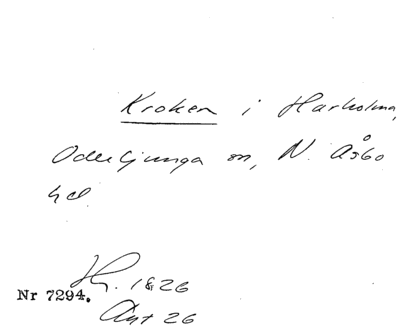 Kroken i Harholma,
Oderljunga sn, N. Åsbo
hd.
H. 1826
Nr 7294.
Avt 26